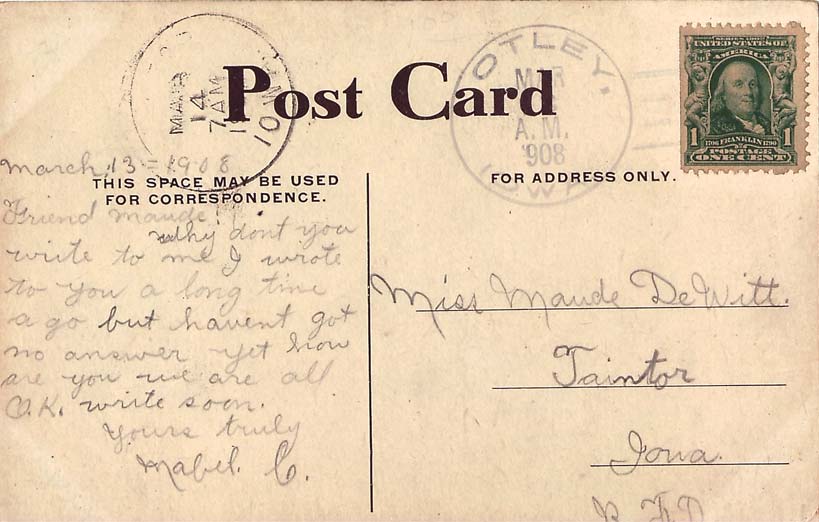 Post Card
THIS SPACE MAY BE USED
FOR CORRESPONDENCE.
FOR ADDRESS ONLY.
March, 13 = 1908
Friend Maude!
Why dont you
write to me I wrote
to you a long time
a go but havent got
no answer yet how
are you we are all
O.K. write soon.
Yours truly
Mabel. C.
MAR
14
7 AM
IOWA
OTLEY,
MAR
A.M.
908
IOWA
SERIES 1902
UNITED STATES OF
AMERICA
1 1
1706 FRANKLIN 1790
POSTAGE
ONE CENT
Miss Maude DeWitt.
Taintor
Iowa.
R F D